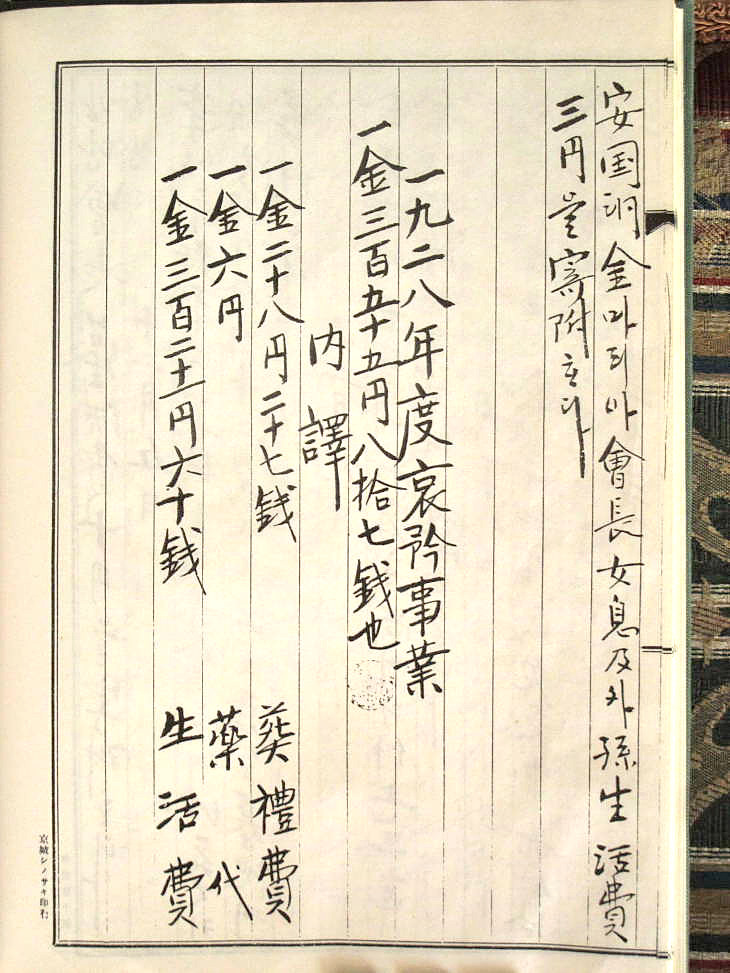 安国洞金마리아會長女息及外孫生活費
三円을寄附하다
一九二八年度哀矜事業
一金三百五十五円八拾七銭也
内譯
一金二十八円二十七銭 葬禮費
一金六円 薬代
一金三百二十一円六十銭 生活費
京城シノサキ印行